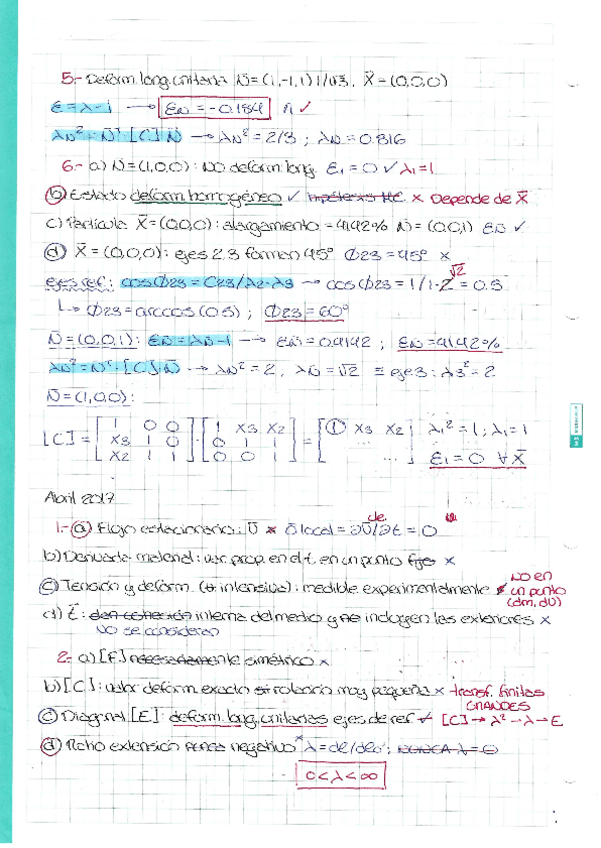 5.- Deform. long. unitaria N̄=(1,-1,1)1/√3, X̄=(0,0,0)
ε=λ-1 → εN=-0.184 ✓
λN²=N̄ᵗ·[C]·N̄ → λN²=2/3; λN=0.816
6.- a) N̄=(1,0,0): NO deform. long. ε1=0 ✓ λ1=1
b) Estado deform. homogéneo ✓ x Depende de X̄
c) Partícula X̄=(0,0,0): alargamiento =41'42% N̄=(0,0,1) εN ✓
d) X̄=(0,0,0): ejes 2,3 forman 45° Φ23=45° x
ejes ref.: cosΦ23=C23/λ2·λ3 → cosΦ23=1/1·2 √2 =0.5
↳ Φ23=arccos(0.5); Φ23=60°
N̄=(0,0,1): εN=λN-1 → εN=0.4142; εN=41'42%
λN²=N̄ᵗ·[C]·N̄ → λN²=2, λN=√2 ≡ eje 3: λ3²=2
N̄=(1,0,0):
[C]=[1 0 0; X3 1 0; X2 1 1]·[1 X3 X2; 0 1 1; 0 0 1]=[1 X3 X2; ...] λ1²=1; λ1=1
ε1=0 ∀X̄
Abril 2017
1.- a) Flujo estacionario: v̄ x δlocal=∂v̄/∂t=0
b) Derivada material: var. prop. en el t. en un punto fijo x
c) Tensión y deform. (+ intensiva): medible experimentalmente x NO en un punto (dm, dV)
d) t̄: interna del medio y no incluyen las exteriores x
NO se consideran
2.- a) [F] necesariamente simétrico x
b) [C]: valor deform. exacto si rotación muy pequeña x transf. finitas GRANDES
c) Diagonal [E]: deform. long. unitarias ejes de ref. [C]→λ²→λ→E
d) Ratio extensión negativo x λ=dl/dl0; NUNCA λ=0
0<λ<∞